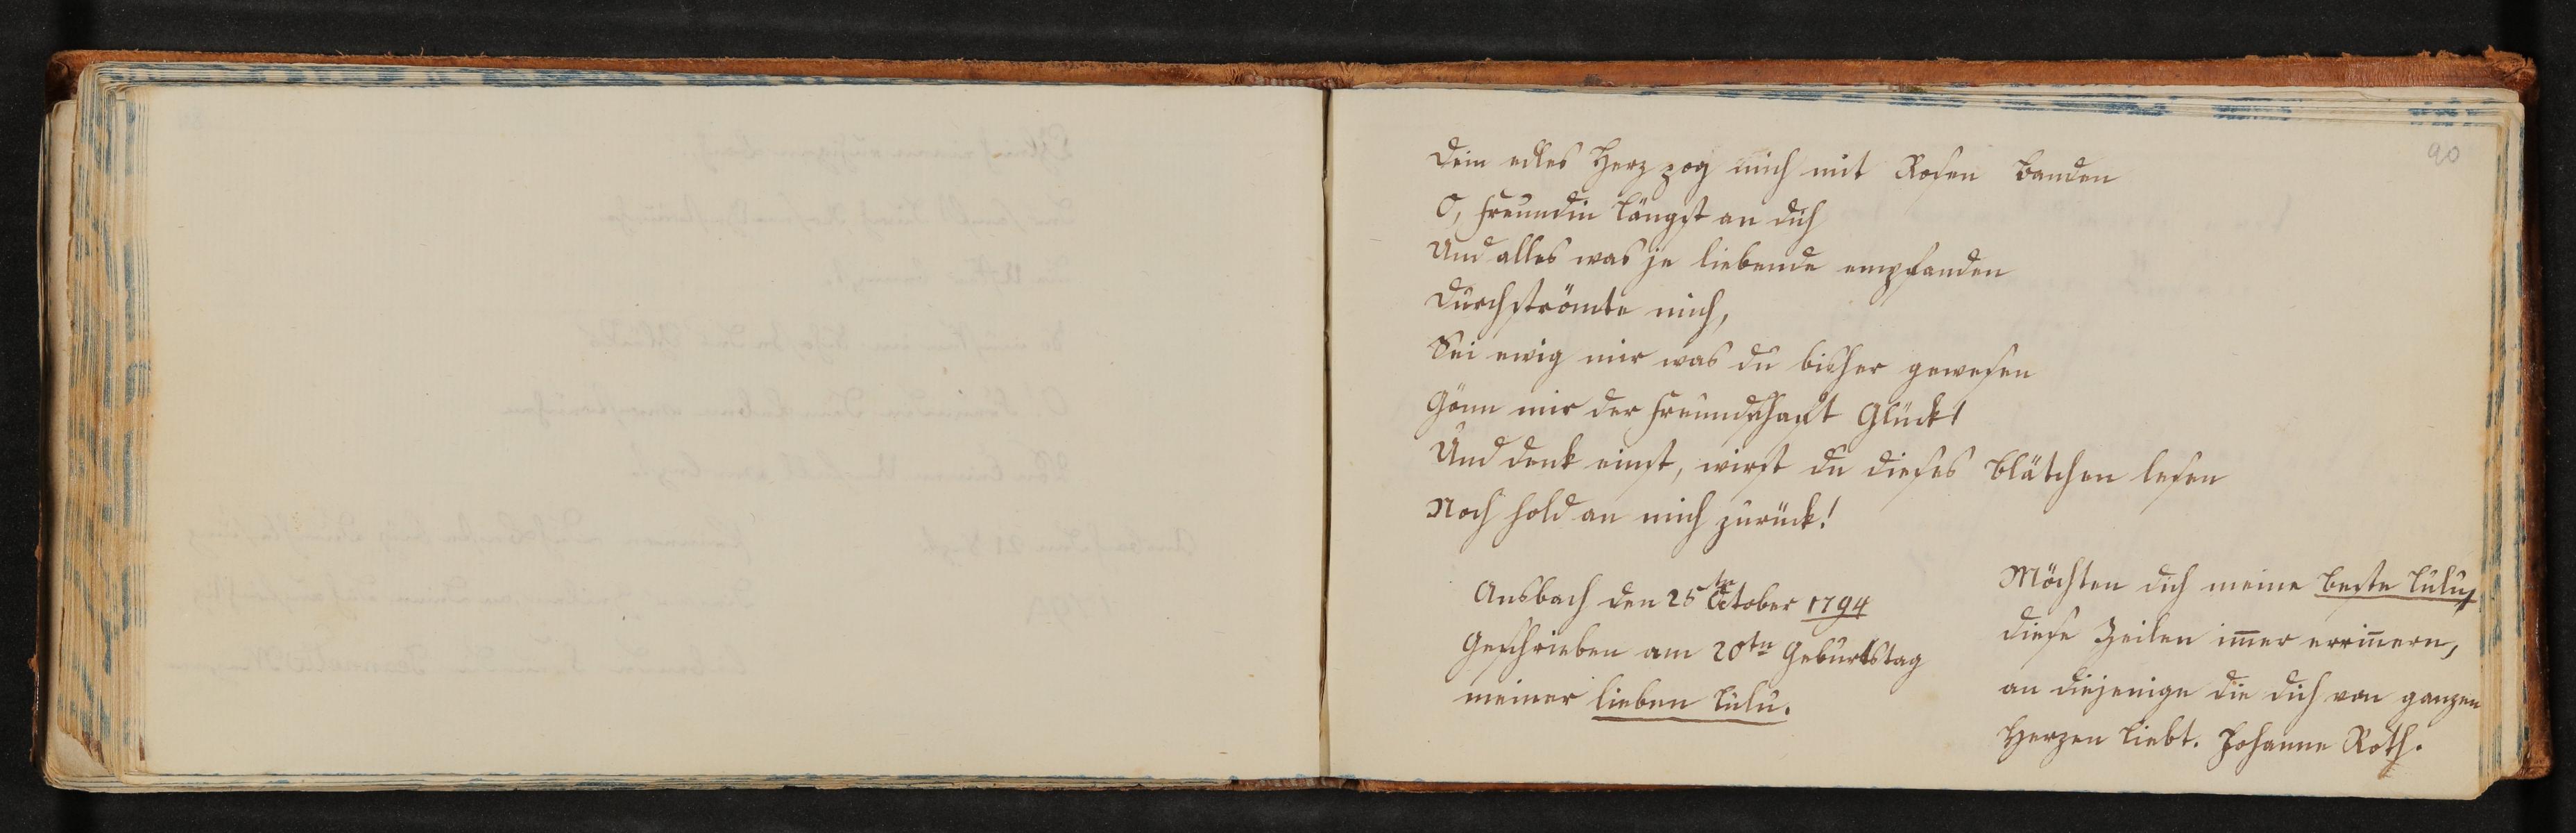 90
Dein edles Herz zog mich mit Rosen banden
O, Freundin längst an dich
Und alles was je liebende empfanden
durchströmte mich,
Sei ewig mir was du bisher gewesen
Gönn mir der Freundschaft Glück!
Und denk einst, wirst du dieses blätchen lesen
Noch hold an mich zurück!
Ansbach den 25tn October 1794
Geschrieben am 20tn Geburtstag
meiner lieben Lulu.
Möchten dich meine beste Lulu,
diese Zeilen im̅er errin̅ern,
an diejenige die dich von ganzen
Herzen liebt. Johanne Roth.